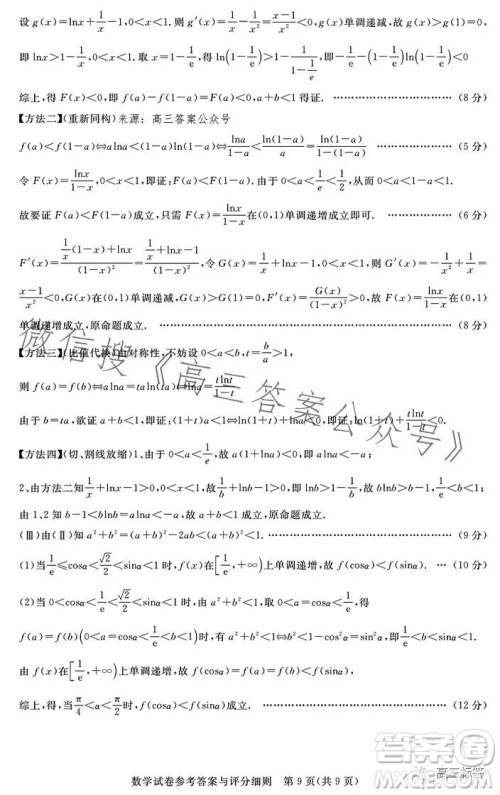 设 g(x)=lnx+1/x-1,0<x<1.则 g'(x)=1/x-1/x²=(x-1)/x²<0,g(x)单调递减,故 g(x)>g(1)=0,
即 lnx>1-1/x,0<x<1.取 x=1-1/e,得 ln(1-1/e)>1-1/(1-1/e),即 1/e+(1-1/e)ln(1-1/e)<0
综上,得 F(x)<0,即 f(a)-f(1-a)<0,a+b<1 得证. (8 分)
【方法二】(重新同构)来源:高三答案公众号
f(a)<f(1-a)⇔alna<(1-a)ln(1-a)⇔lna/(1-a)<ln(1-a)/a (5 分)
令 F(x)=lnx/(1-x),0<x<1,即证:F(a)<F(1-a).由于 0<a<1/e<1/2,从而 0<a<1-a<1.
故要证 F(a)<F(1-a)成立,只需 F(x)在(0,1)单调递增成立即可. (6 分)
F'(x)=(1/x(1-x)+lnx)/(1-x)²=(1/x+lnx-1)/(1-x)²,令 G(x)=1/x+lnx-1,0<x<1,则 G'(x)=-1/x²+1/x=
(x-1)/x²<0,G(x)在(0,1)单调递减,故 G(x)>G(1)=0,F'(x)=G(x)/(1-x)²>0,故 F(x)在(0,1)
单调递增成立,原命题成立. (8 分)
【方法三】(比值代换)由对称性,不妨设 0<a<b,t=b/a>1,
则 f(a)=f(b)⇔alna=blnb⇔alna=talnta⇔lna=tlnt/(1-t)
由于 b=ta,欲证 a+b<1,即证:(1+t)a<1⇔ln(1+t)+lna<0,即证:ln(1+t)+tlnt/(1-t)<0
【方法四】(切、割线放缩)1、由于 0<a<1/e,故 lna<-1,alna<-a,即 alna<-a;
2、由方法二知 1/x+lnx-1>0,0<x<1,故 1/b+lnb-1>0,即 lnb>1-1/b,故 blnb>b-1;
由 1,2 知 b-1<blnb=alna<-a,故 a+b<1.
(Ⅲ)由(Ⅱ)知 a²+b²=(a+b)²-2ab<(a+b)²<1. (9 分)
(1)当 1/e≤cosα<√2/2<sinα<1 时,f(x)在[1/e,+∞)上单调递增,故 f(cosα)<f(sinα). (10 分)
(2)当 0<cosα<1/e<√2/2<sinα<1 时,由 a²+b²<1,取 0<cosα=a<1/e,得
f(a)=f(b)(0<a=cosα<1/e<b<1)时,有 a²+b²<1=cos²α+sin²α,b<sinα.
由 f(x)在[1/e,+∞)上单调递增,故 f(cosα)=f(a)=f(b)<f(sinα),
综上,得当 π/4<α<π/2 时,f(cosα)<f(sinα)成立. (12 分)
数学试卷参考答案与评分细则 第 9 页(共 9 页)
微信搜《高三答案公众号》
答案圈